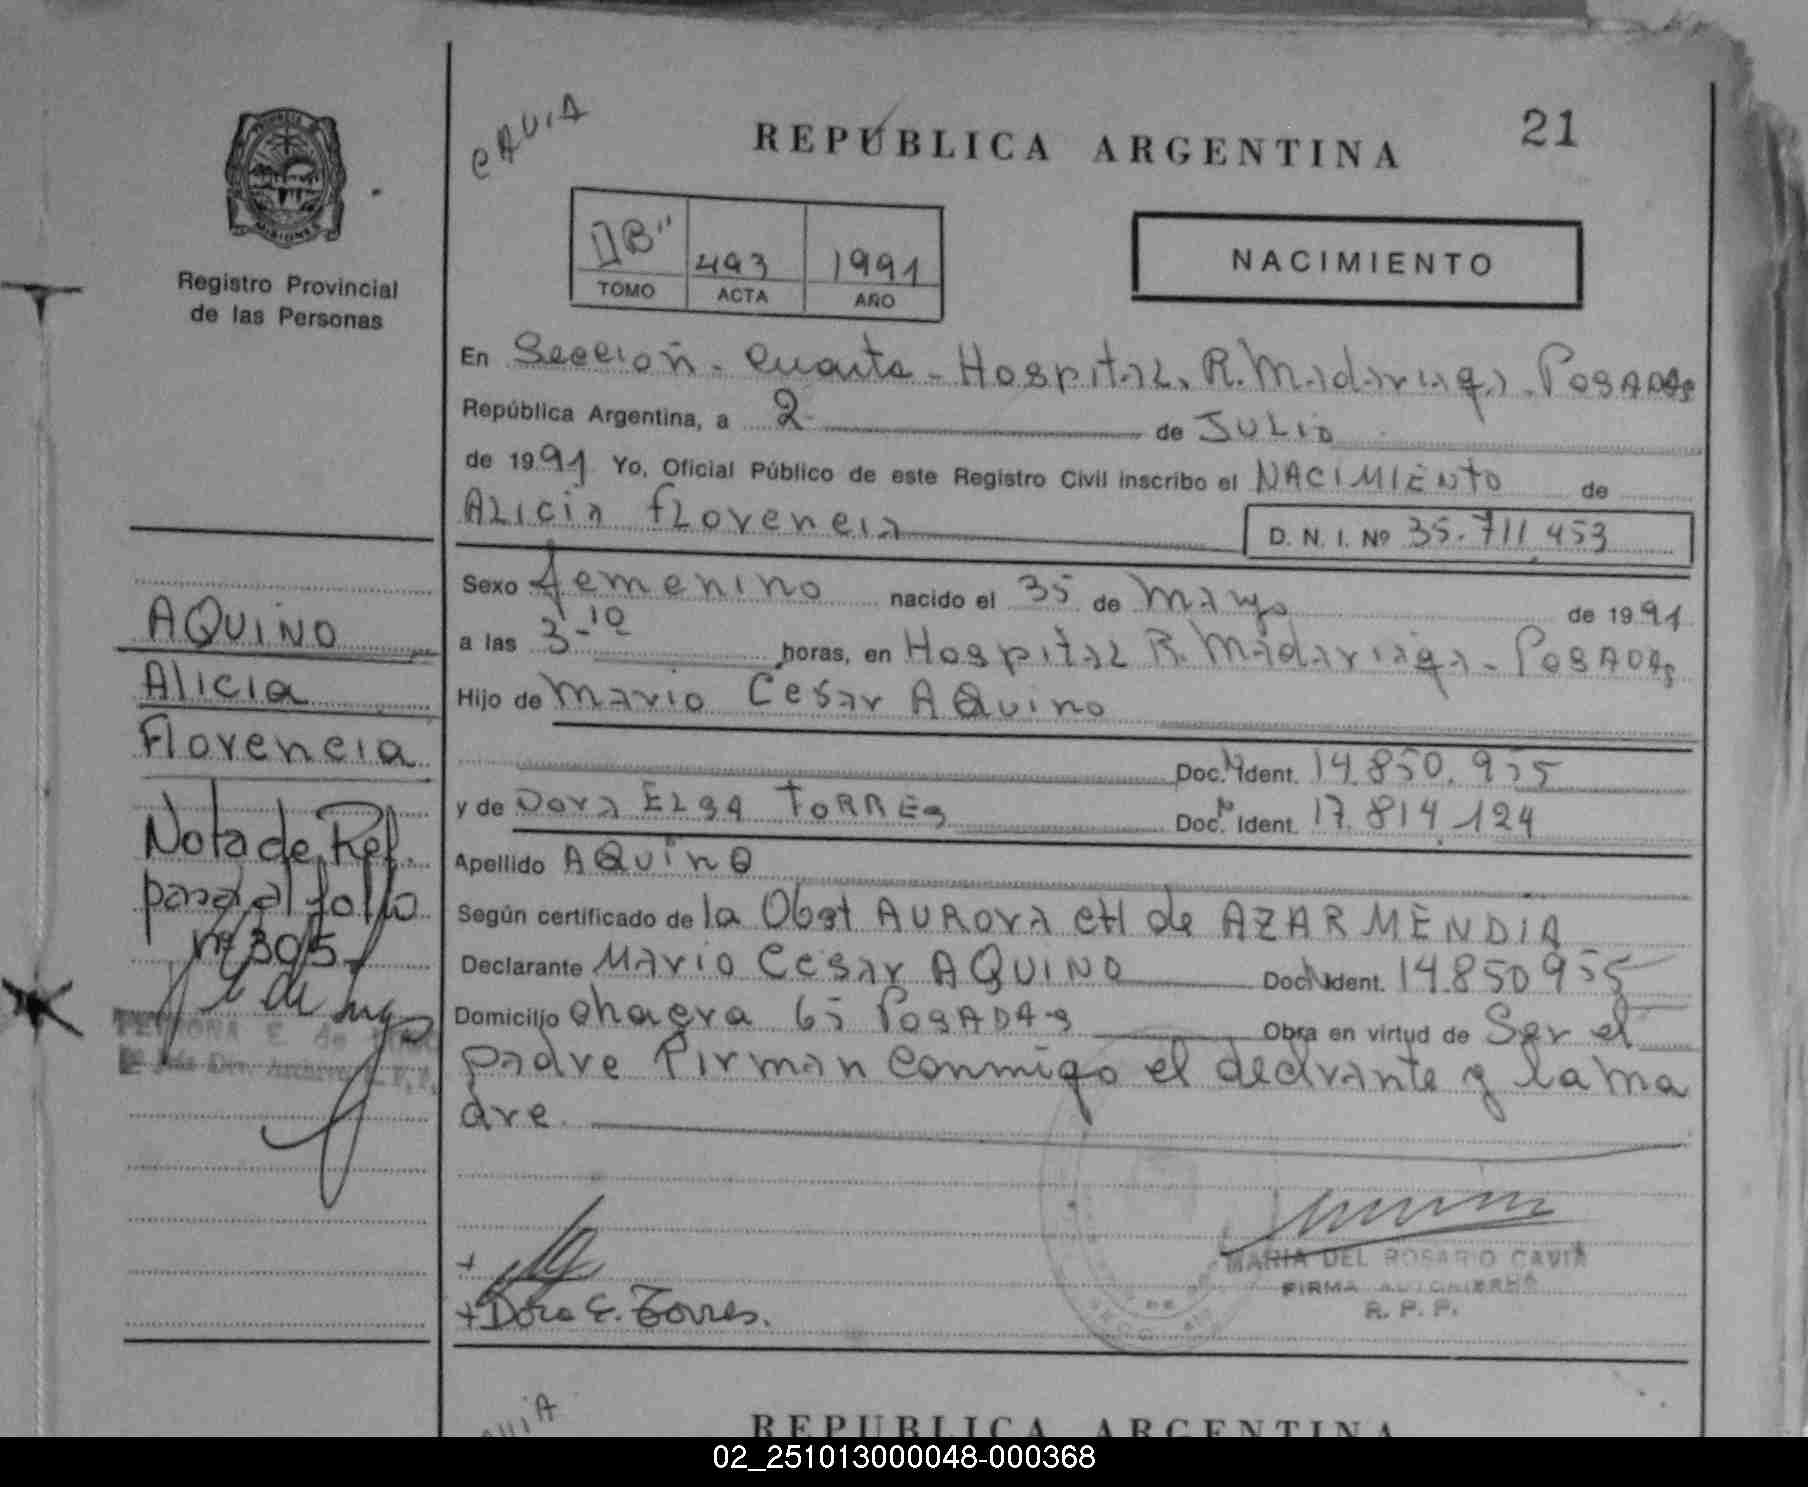 CAVIA
REPÚBLICA ARGENTINA
21
MISIONES
Registro Provincial
de las Personas
II "B" 493 1991
TOMO ACTA AÑO
NACIMIENTO
En Sección - Cuarta - Hospital R. Madariaga - Posadas
República Argentina, a 2 de Julio
de 1991 Yo, Oficial Público de este Registro Civil inscribo el NACIMIENTO de
Alicia Florencia
D. N. I. Nº 35.711.453
Sexo femenino nacido el 35 de Mayo de 1991
a las 3-10 horas, en Hospital R. Madariaga - Posadas
Hijo de Mario Cesar Aquino
Doc. N Ident. 14.850.955
y de Dora Elsa Torres Doc. N Ident. 17.814.124
Apellido AQuino
Según certificado de la Obst Aurora CH de AZARMENDIA
Declarante Mario Cesar AQUINO Doc. N Ident. 14.850955
Domicilio chacra 65 Posadas Obra en virtud de Ser el
padre Firman conmigo el declarante y la ma
dre.
AQUINO
Alicia
Florencia
Nota de Ref.
pasa al folio
nº 305
+
+ Dora E. Torres.
MARIA DEL ROSARIO CAVIA
FIRMA AUTORIZADA
R. P. P.
REPUBLICA ARGENTINA
02_251013000048-000368